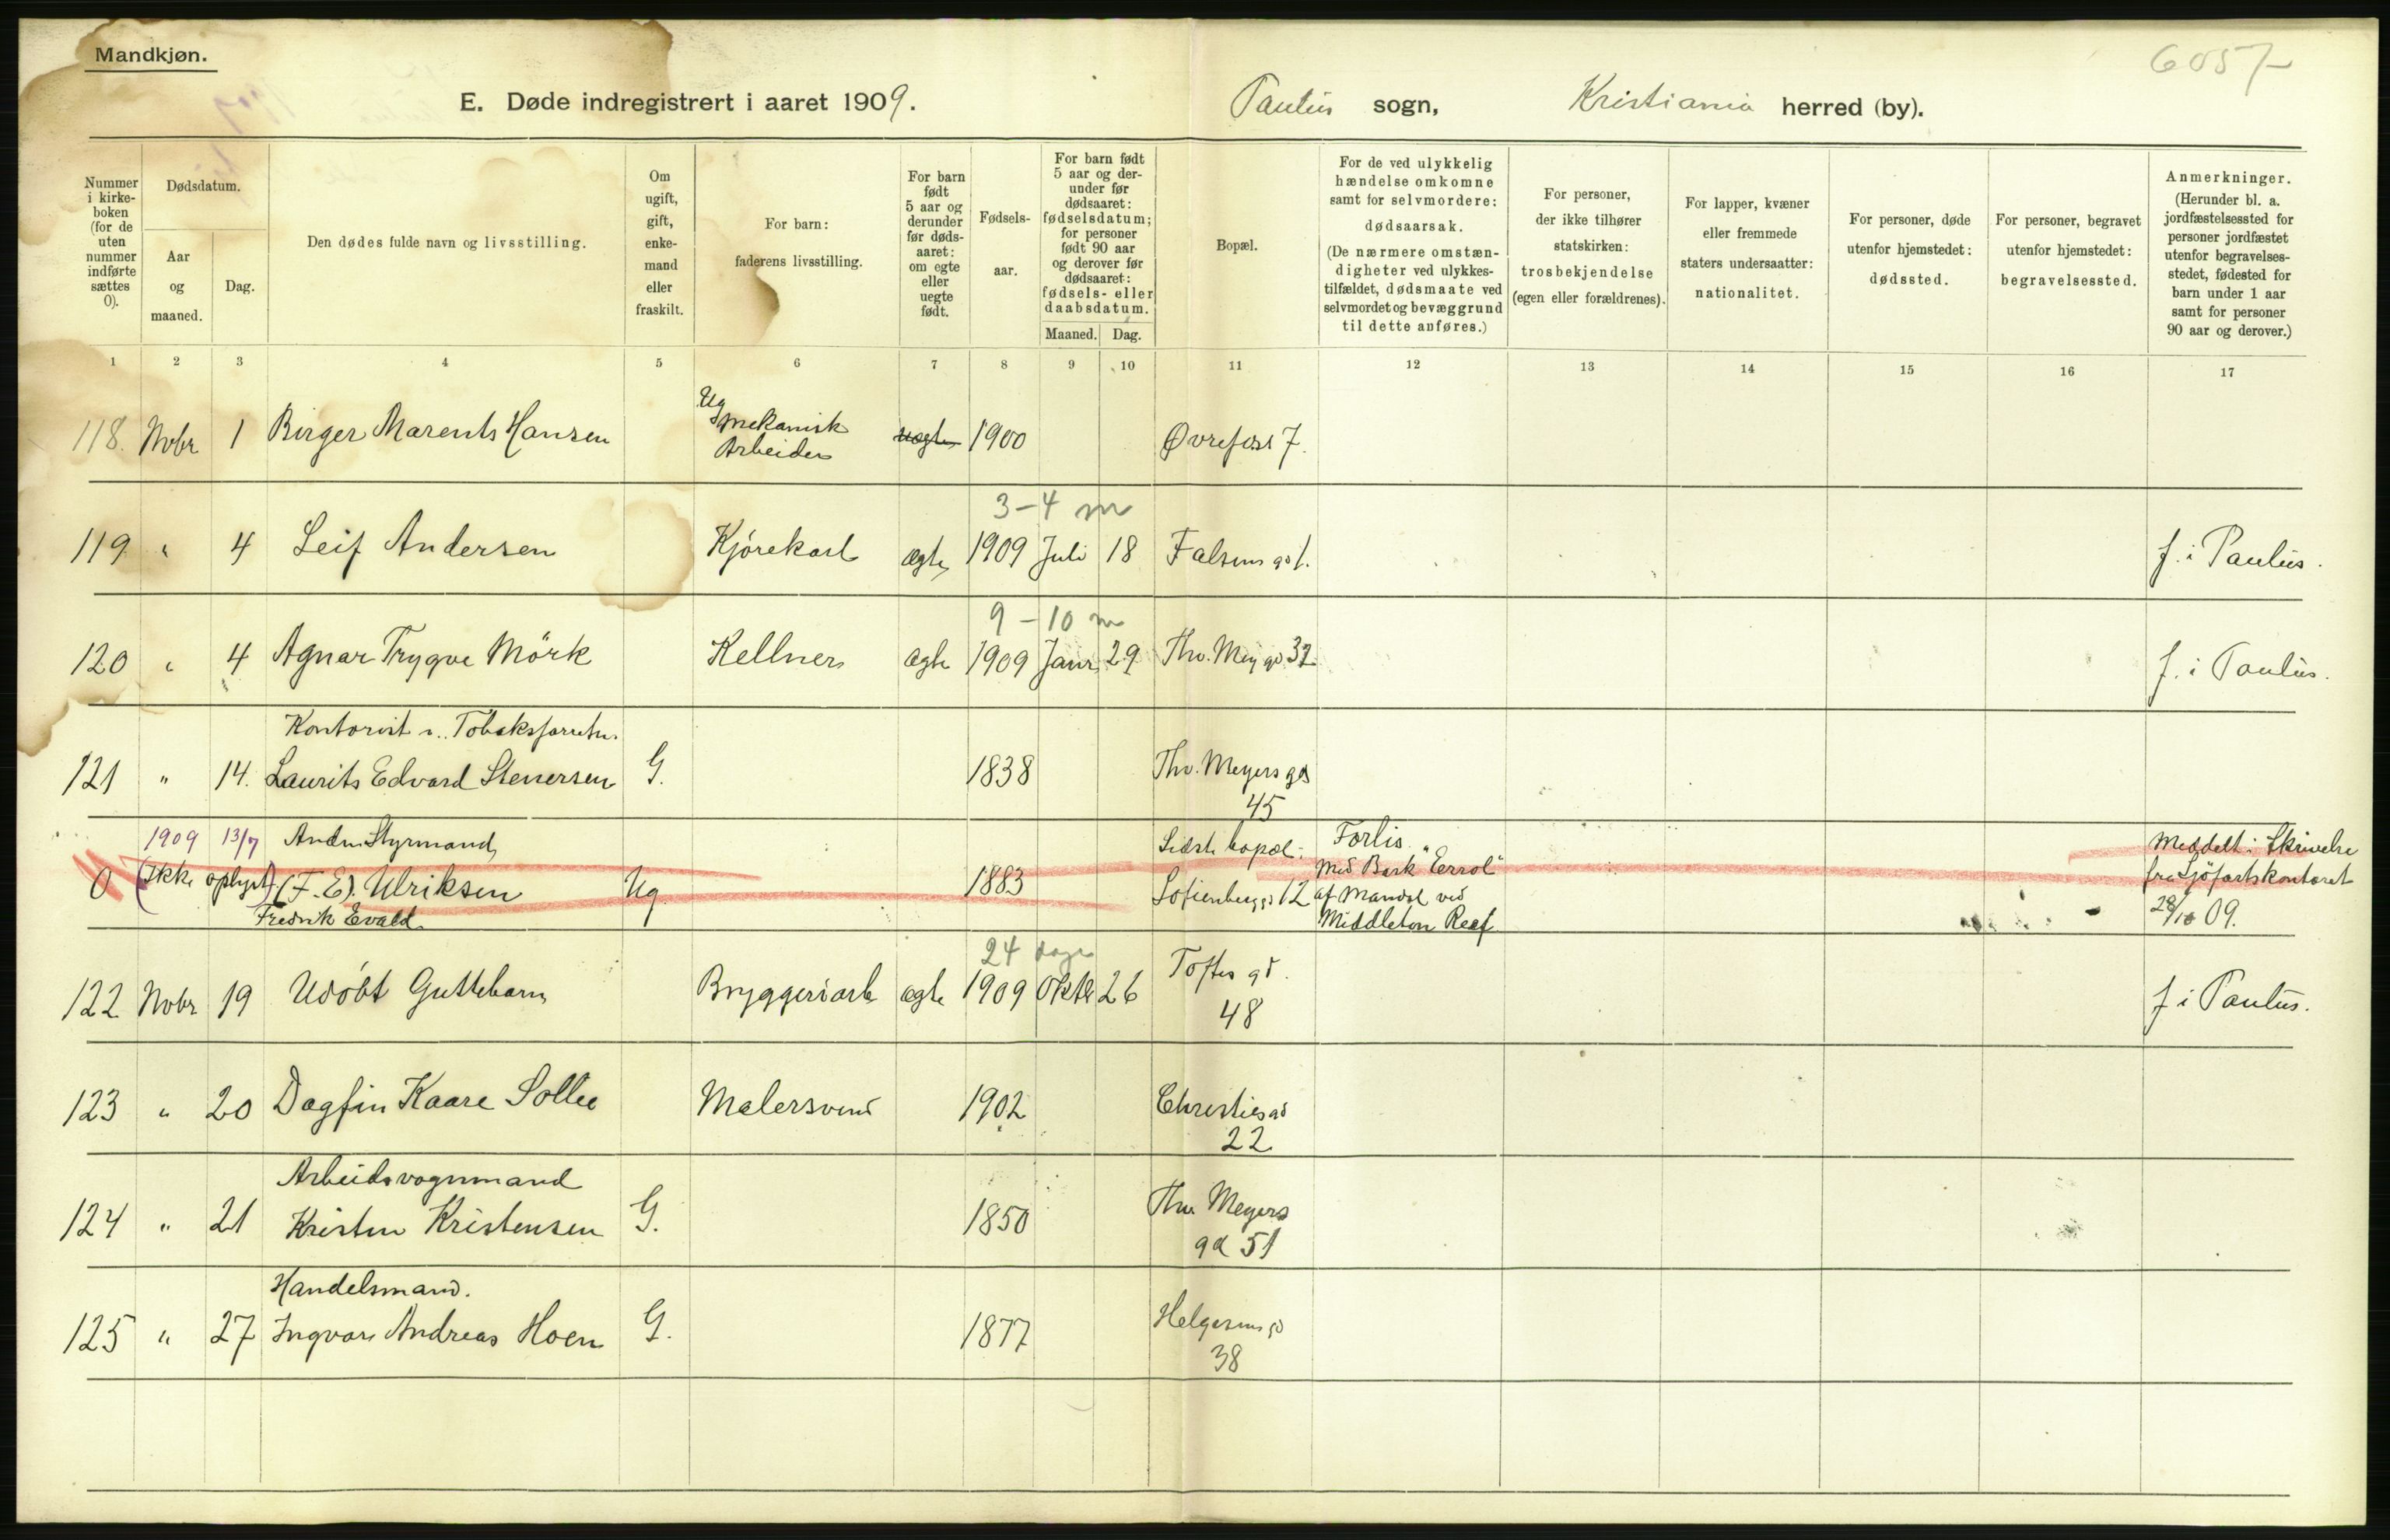 Mandkjøn.
6057
E. Døde indregistrert i aaret 1909.
Paulus sogn, Kristiania herred (by).
Nummer i kirke-boken (for de uten nummer indførte sættes 0).
Dødsdatum.
Aar og maaned.
Dag.
Den dødes fulde navn og livsstilling.
Om ugift, gift, enke-mand eller fraskilt.
For barn: faderens livsstilling.
For barn født 5 aar og derunder før døds-aaret: om egte eller uegte født.
Fødsels-aar.
For barn født 5 aar og der-under før dødsaaret: fødselsdatum; for personer født 90 aar og derover før dødsaaret: fødsels- eller daabsdatum.
Maaned. Dag.
Bopæl.
For de ved ulykkelig hændelse omkomne samt for selvmordere: dødsaarsak. (De nærmere omstæn-digheter ved ulykkes-tilfældet, dødsmaate ved selvmordet og bevæggrund til dette anføres.)
For personer, der ikke tilhører statskirken: trosbekjendelse (egen eller forældrenes).
For lapper, kvæner eller fremmede staters undersaatter: nationalitet.
For personer, døde utenfor hjemstedet: dødssted.
For personer, begravet utenfor hjemstedet: begravelsessted.
Anmerkninger. (Herunder bl. a. jordfæstelsessted for personer jordfæstet utenfor begravelses-stedet, fødested for barn under 1 aar samt for personer 90 aar og derover.)
1 2 3 4 5 6 7 8 9 10 11 12 13 14 15 16 17
Ug
118. Nobr 1 Birger Marents Hansen mekanisk Arbeider uegte 1900 Øvrefoss 7.
3-4 m
119 " 4 Leif Andersen Kjørekarl ægte 1909 Juli 18 Falsens gd 1. f. i Paulus.
9-10 m
120 " 4 Agnar Trygve Mörk Kellner ægte 1909 Janr 29 Thv. Mey gd 32 f. i Paulus.
Kontorist
121 " 14. Laurits Edvard Stenersen G. 1838 Thv. Meyers gd 45
1909 13/7 Anden Styrmand Sidste bopæl: Forlis. Meddelt i Skrivelse
0 (Ikke oplyst) (F. E.) Ulriksen Ug 1883 Sofienberggd 12 med Bark "Errol" af Mandal ved fra Sjöfartskontoret
Fredrik Evald Middleton Reef 28/10 09.
24 dage
122 Nobr 19 Udöbt Guttebarn Bryggeriarb ægte 1909 Oktbr 26 Toftes gd. 48 f i Paulus.
123 " 20 Dagfin Kaare Sollie Malersvend 1902 Christies gd 22
Arbeidsvognmand
124 " 21 Kristen Kristensen G. 1850 Thv Meyers gd 51
Handelsmand.
125 " 27 Ingvar Andreas Hoen G. 1877 Helgesens gd 38